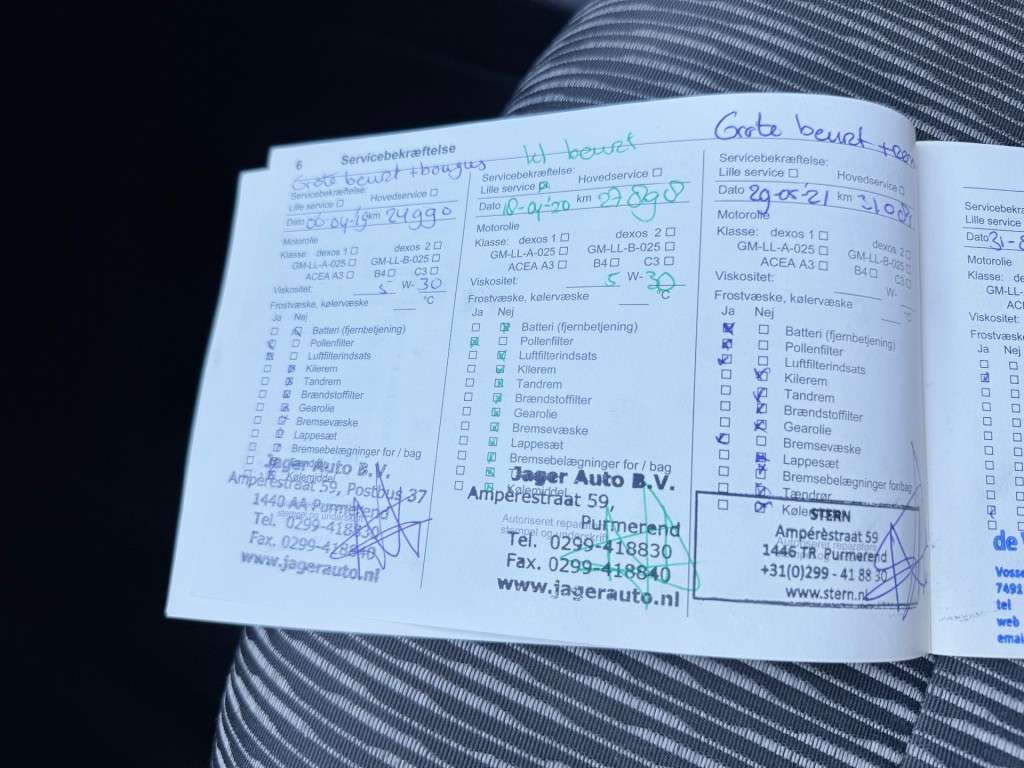 6 Servicebekræftelse
Grote beurt + bougies
Servicebekræftelse:
Lille service Hovedservice
Dato 06-04-'19 km 24990
Motorolie
Klasse: dexos 1 dexos 2
GM-LL-A-025 GM-LL-B-025
ACEA A3 B4 C3
Viskositet: 5 W- 30
Frostvæske, kølervæske °C
Ja Nej
Batteri (fjernbetjening)
Pollenfilter
Luftfilterindsats
Kilerem
Tandrem
Brændstoffilter
Gearolie
Bremsevæske
Lappesæt
Bremsebelægninger for / bag
Kølemiddel
Jager Auto B.V.
Ampèrestraat 59, Postbus 37
1440 AA Purmerend
Tel. 0299-418830
Fax. 0299-418840
www.jagerauto.nl
kl beurt
Servicebekræftelse:
Lille service Hovedservice
Dato km 27898
Motorolie
Klasse: dexos 1 dexos 2
GM-LL-A-025 GM-LL-B-025
ACEA A3 B4 C3
Viskositet: 5 W- 30
Frostvæske, kølervæske °C
Ja Nej
Batteri (fjernbetjening)
Pollenfilter
Luftfilterindsats
Kilerem
Tandrem
Brændstoffilter
Gearolie
Bremsevæske
Lappesæt
Bremsebelægninger for / bag
Kølemiddel
Jager Auto B.V.
Ampèrestraat 59,
Autoriseret
stempel og underskrift
Purmerend
Tel. 0299-418830
Fax. 0299-418840
www.jagerauto.nl
Grote beurt +
Servicebekræftelse:
Lille service Hovedservice
Dato 29-05-'21 km
Motorolie
Klasse: dexos 1 dexos 2
GM-LL-A-025 GM-LL-B-025
ACEA A3 B4 C3
Viskositet: W-
Frostvæske, kølervæske °C
Ja Nej
Batteri (fjernbetjening)
Pollenfilter
Luftfilterindsats
Kilerem
Tandrem
Brændstoffilter
Gearolie
Bremsevæske
Lappesæt
Bremsebelægninger for/bag
Tændrør
STERN
Ampérèstraat 59
1446 TR Purmerend
+31(0)299 - 41 88 30
www.stern.nl
Lille service
Dato
Motorolie
Klasse: dexos
Viskositet:
Frostvæske
Ja Nej
de
7491
tel
web
email